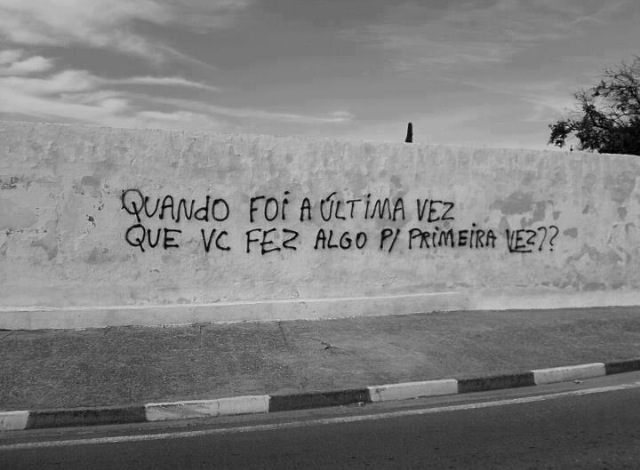 QUANDO FOI A ÚLTIMA VEZ
QUE VC FEZ ALGO P/ PRIMEIRA VEZ??